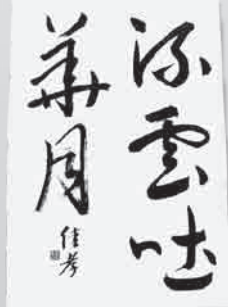 流雲吐
華月
佳孝